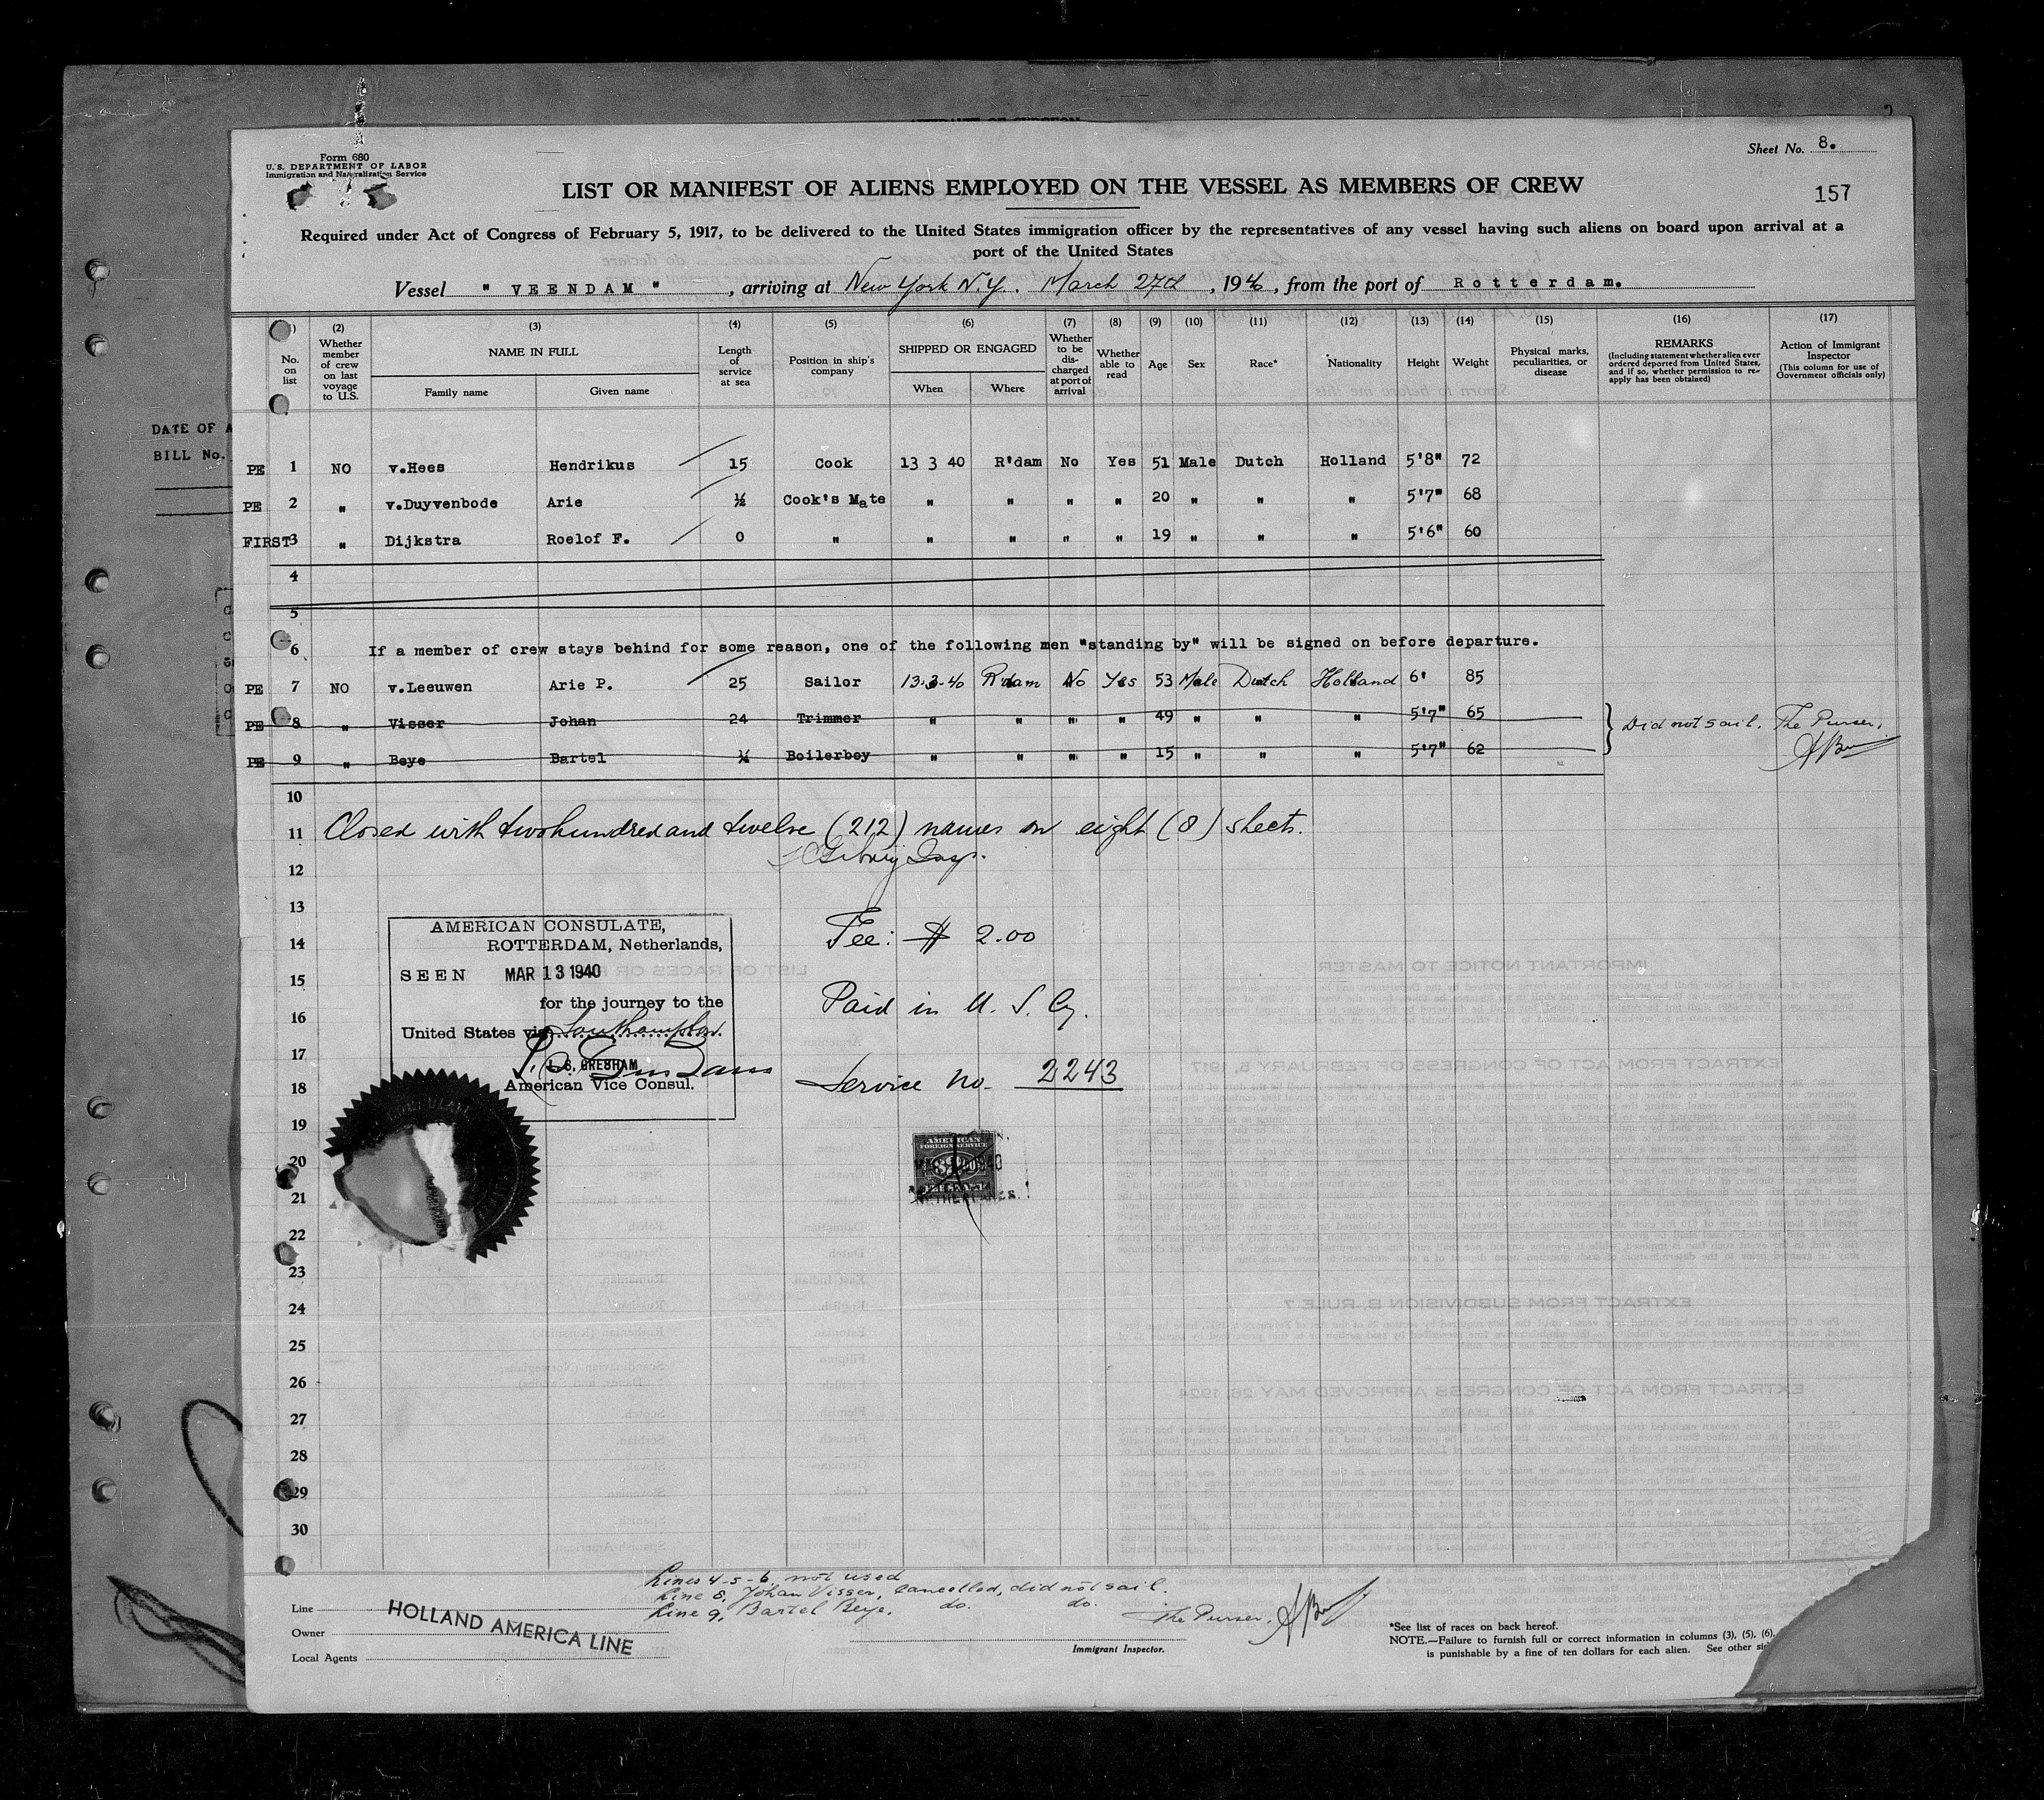 Form 680
U. S. DEPARTMENT OF LABOR
Immigration and Naturalization Service
Sheet No. 8.
157
LIST OR MANIFEST OF ALIENS EMPLOYED ON THE VESSEL AS MEMBERS OF CREW
Required under Act of Congress of February 5, 1917, to be delivered to the United States immigration officer by the representatives of any vessel having such aliens on board upon arrival at a
port of the United States
Vessel " VEENDAM " , arriving at New York N.Y. March 27th , 1940 , from the port of Rotterdam.
(2) (3) (4) (5) (6) (7) (8) (9) (10) (11) (12) (13) (14) (15) (16) (17)
No. on list
Whether member of crew on last voyage to U.S.
NAME IN FULL
Family name Given name
Length of service at sea
Position in ship's company
SHIPPED OR ENGAGED
When Where
Whether to be discharged at port of arrival
Whether able to read
Age
Sex
Race*
Nationality
Height
Weight
Physical marks, peculiarities, or disease
REMARKS
(Including statement whether alien ever ordered deported from United States, and if so, whether permission to reapply has been obtained)
Action of Immigrant Inspector
(This column for use of Government officials only)
DATE OF A
BILL No.
PE 1 NO v.Hees Hendrikus 15 Cook 13 3 40 R'dam No Yes 51 Male Dutch Holland 5'8" 72
PE 2 " v.Duyvenbode Arie ½ Cook's Mate " " " " 20 " " " 5'7" 68
FIRST 3 " Dijkstra Roelof F. 0 " " " " " 19 " " " 5'6" 60
4
5
6 If a member of crew stays behind for some reason, one of the following men "standing by" will be signed on before departure.
PE 7 NO v.Leeuwen Arie P. 25 Sailor 13-3-40 R'dam No Yes 53 Male Dutch Holland 6' 85
PE 8 " Visser Johan 24 Trimmer " " " " 49 " " " 5'7" 65 Did not sail. The Purser,
PE 9 " Beye Bartel Boilerboy " " " " 15 " " " 5'7" 62
10
11 Closed with twohundred and twelve (212) names on eight (8) sheets.
12
13
14 Fee: $ 2.00
15
16 Paid in U. S. Cy.
17
18 Service No. 2243
AMERICAN CONSULATE,
ROTTERDAM, Netherlands,
SEEN MAR 13 1940
for the journey to the
United States via Southampton
GRESHAM
American Vice Consul.
19
20
21
AMERICAN
FOREIGN SERVICE
NETHERLANDS
22
23
24
25
26
27
28
29
30
Lines 4-5-6, not used
Line 8, Johan Visser, Cancelled, did not sail.
Line 9, Bartel Beye, do. do. The Purser,
Line
Owner
Local Agents
HOLLAND AMERICA LINE
Immigrant Inspector.
*See list of races on back hereof.
NOTE.—Failure to furnish full or correct information in columns (3), (5), (6),
is punishable by a fine of ten dollars for each alien. See other